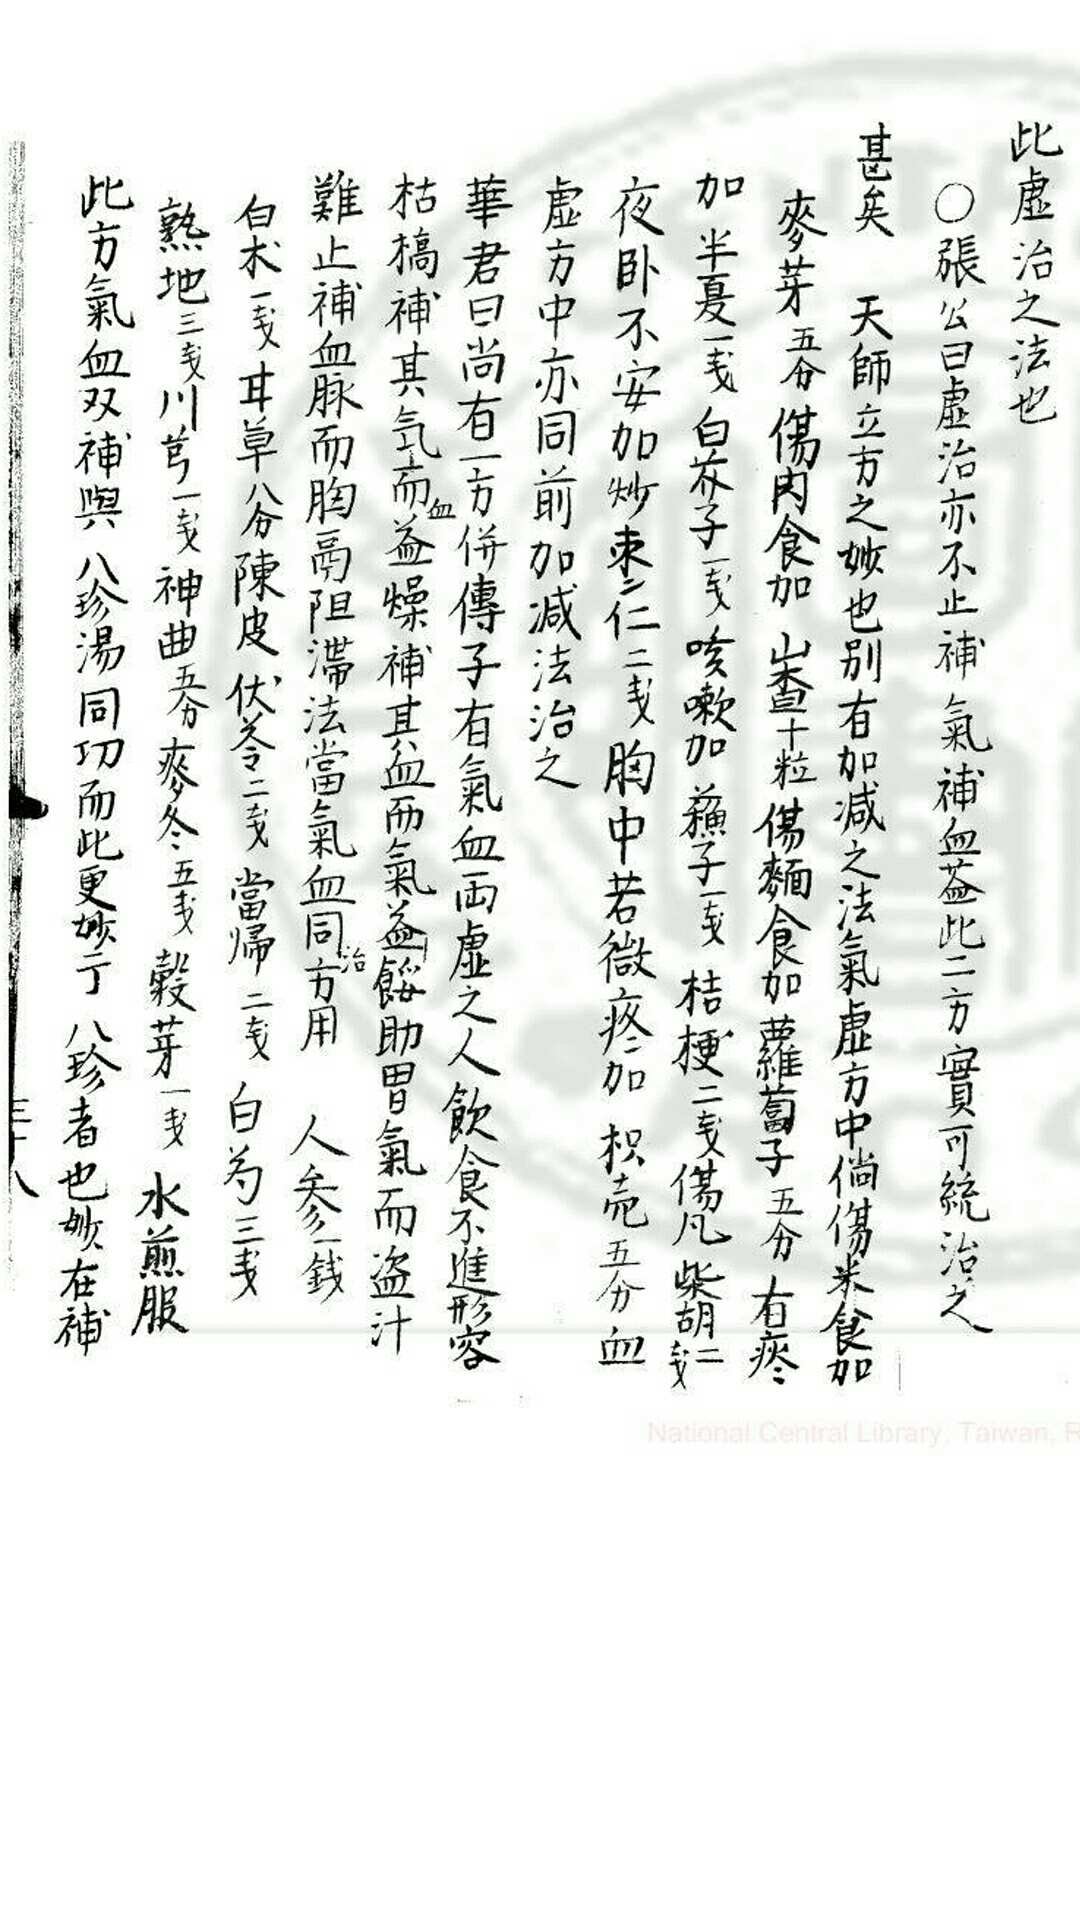 此虛治之法也
○張公曰虛治亦不止補氣補血葢此二方實可統治之
甚矣　天師立方之妙也別有加減之法氣虛方中倘傷米食加
麥芽五分傷肉食加山查十粒傷麵食加蘿蔔子五分有痰
加半夏一戔白芥子一戔咳嗽加蘇子一戔桔梗二戔傷風柴胡二戔
夜卧不安加炒枣仁二戔胸中若微疼加枳壳五分血
虛方中亦同前加减法治之
華君曰尚有一方併傳子有氣血兩虛之人飲食不進形容
枯槁補其氣而血益燥補其血而氣益餒助胃氣而盗汁
難止補血脉而胸鬲阻滯法當氣血同治方用　人參一錢
白术一戔甘草八分陳皮　伏苓二戔當帰二戔白芍三戔
熟地三戔川芎一戔神曲五分麥冬五戔穀芽一戔水煎服
此方氣血双補與八珍湯同功而此更妙于八珍者也妙在補
三十八
National Central Library, Taiwan, R